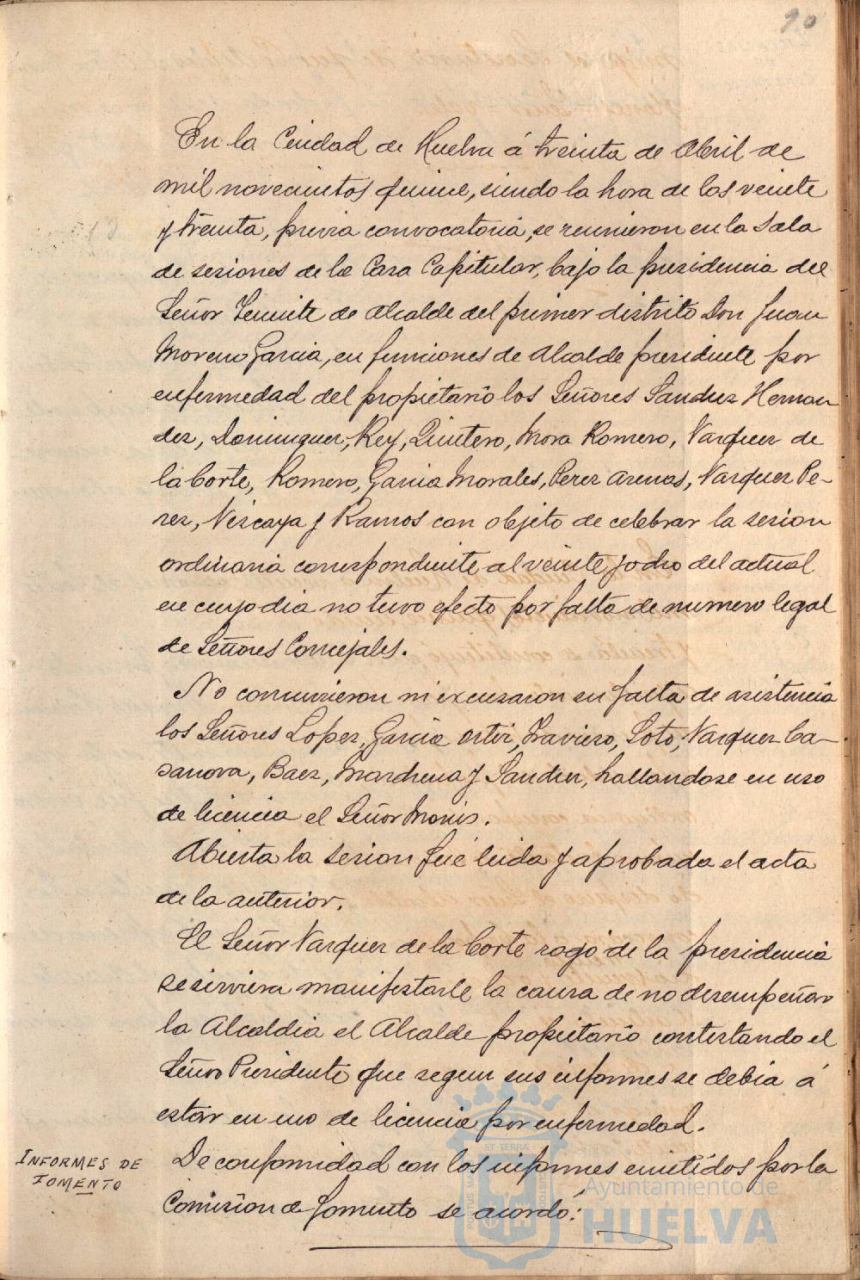 90
En la Ciudad de Huelva á treinta de Abril de
mil novecientos quince, siendo la hora de las veinte
y treinta, previa convocatoria, se reunieron en la Sala
de sesiones de la Casa Capitular, bajo la presidencia del
Señor Teniente de Alcalde del primer distrito Don Juan
Moreno Garcia, en funciones de Alcalde presidente por
enfermedad del propietario los Señores Sanchez Hernan
dez, Dominguez, Rey, Quintero, Mora Romero, Vazquez de
la Corte, Romero, Garcia Morales, Perez Arenas, Vazquez Pe-
rez, Vizcaya y Ramos con objeto de celebrar la sesion
ordinaria correspondiente al veinte y ocho del actual
en cuyo dia no tuvo efecto por falta de numero legal
de Señores Concejales.
No concurrieron ni excusaron su falta de asistencia
los Señores Lopez, Garcia Ortiz, Travieso, Soto, Vazquez Ca-
sanova, Baez, Marchena y Sanchez, hallandose en uso
de licencia el Señor Monis.
Abierta la sesion fué leida y aprobada el acta
de la anterior.
El Señor Vazquez de la Corte rogó de la presidencia
se sirviera manifestarle la causa de no desempeñar
la Alcaldia el Alcalde propietario contestando el
Señor Presidente que segun sus informes se debia á
estar en uso de licencia por enfermedad.
INFORMES DE
FOMENTO
De conformidad con los informes emitidos por la
Comision de fomento se acordó:
Ayuntamiento de
HUELVA